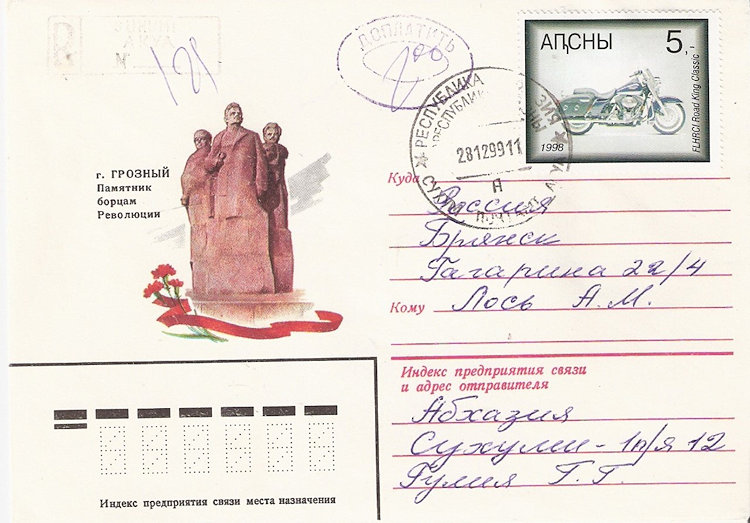 R
№ 121
ДОПЛАТИТЬ
АԤСНЫ 5
1998
FLHRCI Road King Classic
РЕСПУБЛИКА
28129911
Н
г. ГРОЗНЫЙ
Памятник
борцам
Революции
Куда Россия
Брянск
Гагарина 22/4
Кому Лось А.М.
Индекс предприятия связи
и адрес отправителя
Абхазия
Сухуми-1 п/я 12
Гулия Г.Г.
Индекс предприятия связи места назначения